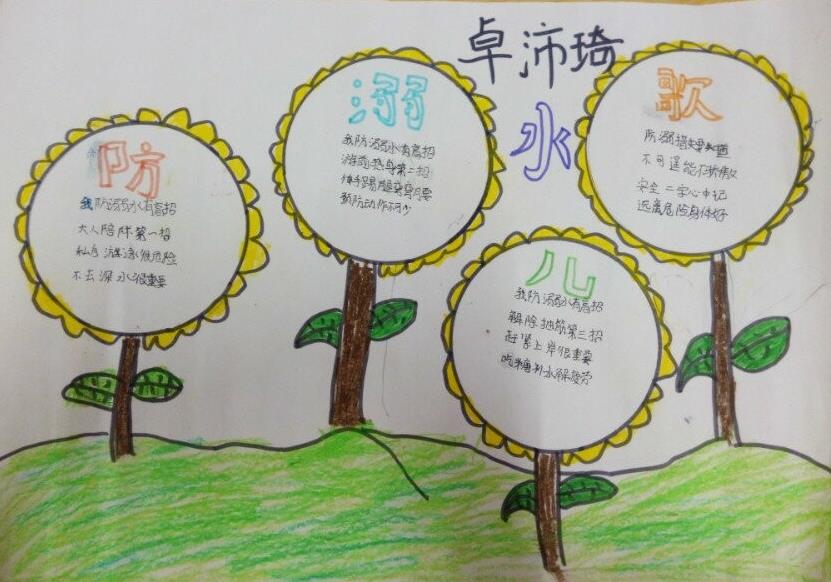 卓沛琦
防
我防溺水有高招
大人陪伴第一招
私自游泳很危险
不去深水很重要
溺
我防溺水有高招
游前热身第二招
伸手踢腿弯弯腰
预防动作不可少
水
儿
我防溺水有高招
解除抽筋第三招
赶紧上岸很重要
糖补水解疲劳
歌
防溺措要知道
不可逞能不骄傲
安全二字心中记
远离危险身体好